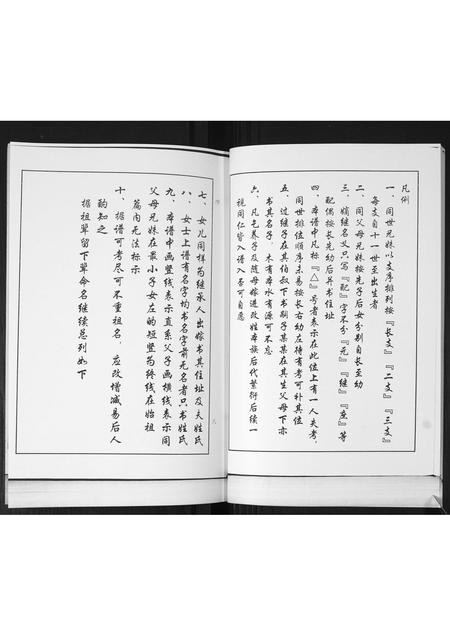 凡例
一、同世兄妹以支序排列按『长支』『二支』『三支』
每支自十一世至出生者
二、同父母兄妹按先子后女分别自长至幼
三、嫡继名义只写『配』字不分『元』『继』『庶』等
配偶按长先幼后并书住址
四、本谱中凡标『△』号者表示在此位上有一人失考，
同世排位顺序未易按长右幼左待有考可补其位
五、过继子在其伯叔下书嗣子某某在其生父母下亦
书其名字，木有本水有源可不忘
六、凡乞养子及随母嫁进改姓本族后代繁衍后续一
视同仁皆入谱入否可自愿
七、女儿同样为继承人出嫁书其住址及夫姓氏
八、女士上谱有名字均书名字前无名者只书姓氏
九、本谱中画竖线表示直系父子画横线表示同
父母兄妹在最小子女左的短竖为终线在始祖
篇内无法标示
十、据谱可考尽可不重祖名，应改增减易后人
酌知之
据祖辈留下辈命名继续总列如下